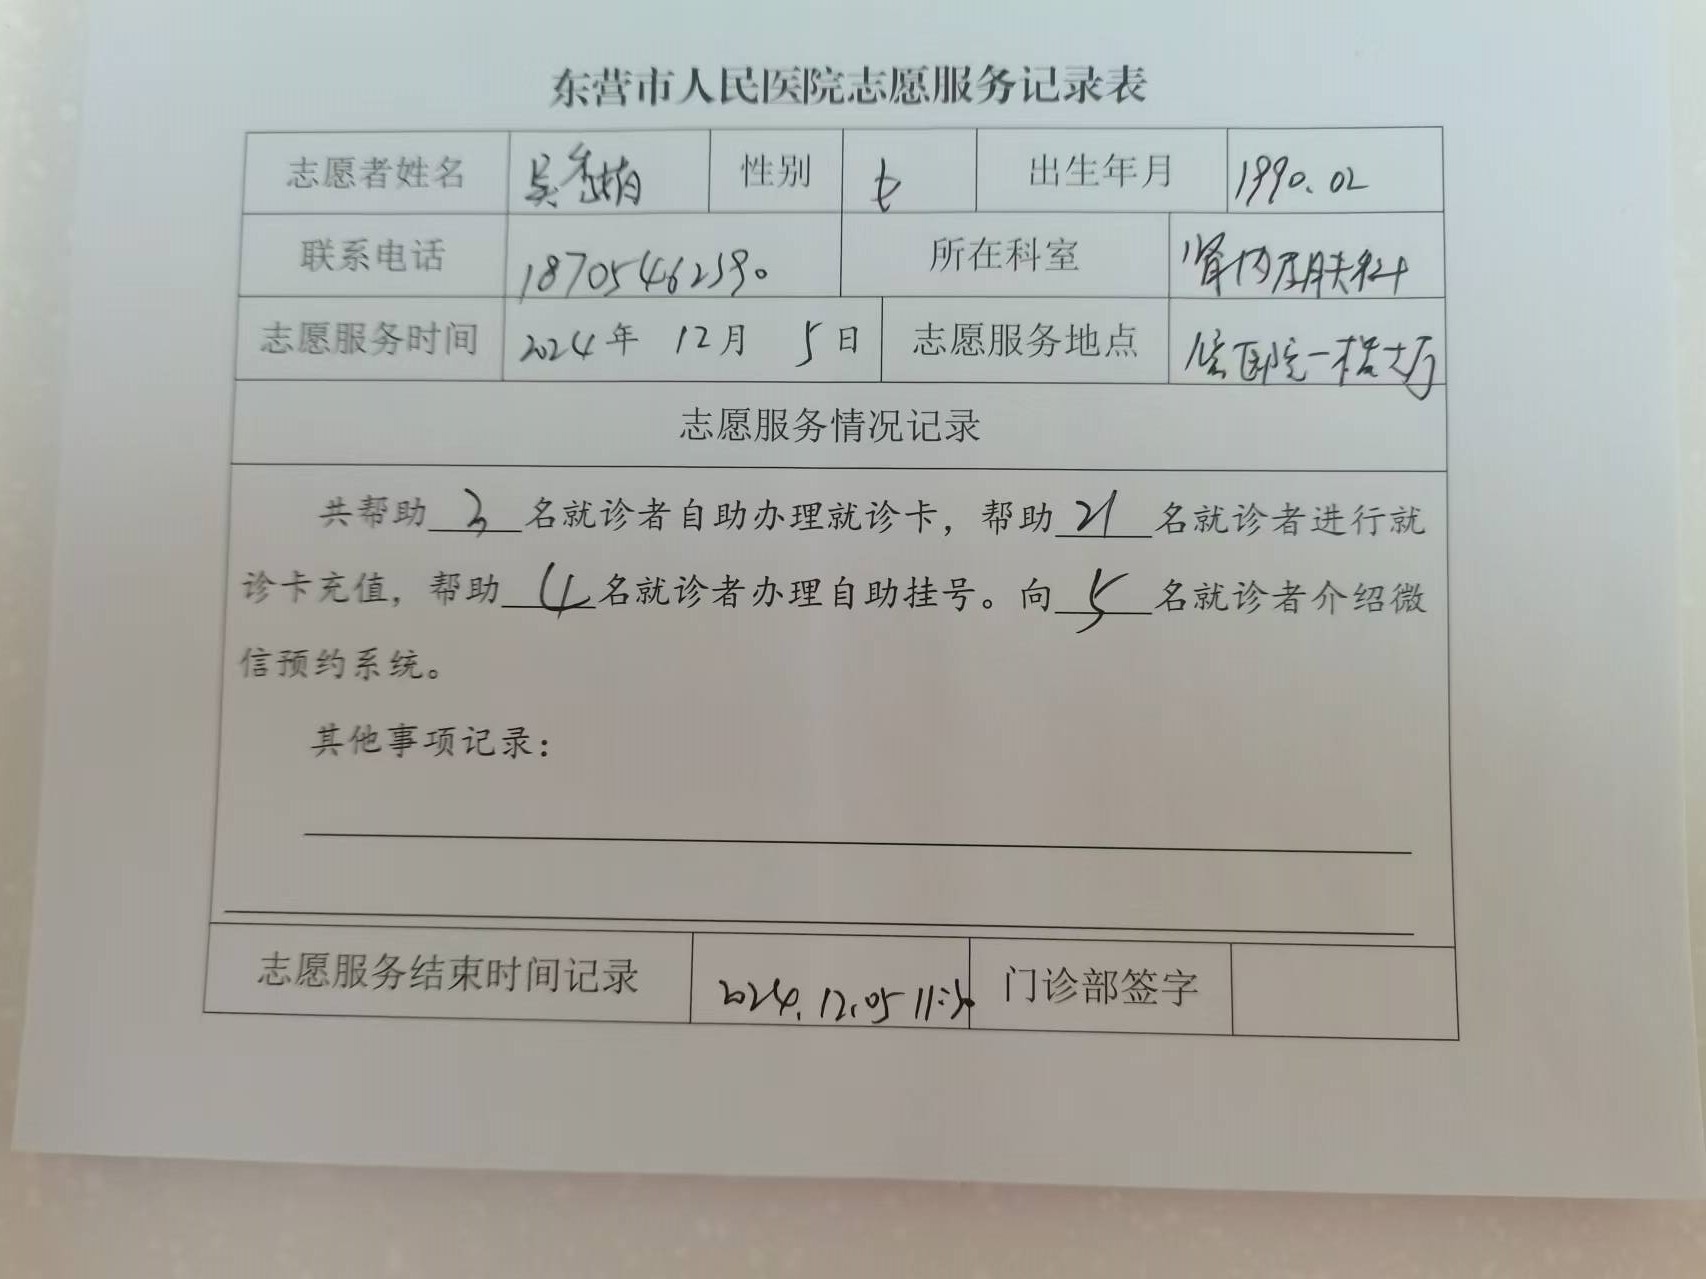 东营市人民医院志愿服务记录表
志愿者姓名 吴秀娟 性别 女 出生年月 1990.02
联系电话 18705462390 所在科室 肾内皮肤科
志愿服务时间 2024年 12月 5日 志愿服务地点 医院一楼大厅
志愿服务情况记录
共帮助 3 名就诊者自助办理就诊卡，帮助 21 名就诊者进行就
诊卡充值，帮助 4 名就诊者办理自助挂号。向 5 名就诊者介绍微
信预约系统。
其他事项记录：
志愿服务结束时间记录 2024.12.05 11:30 门诊部签字